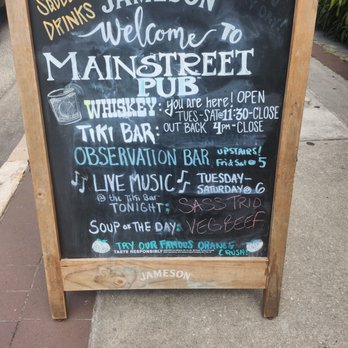 DRINKS
JAMESON
Welcome TO
MAINSTREET
PUB
WHISKEY: you are here! OPEN
TUES-SAT@11:30-CLOSE
TIKI BAR: OUT BACK 4PM-CLOSE
OBSERVATION BAR UPSTAIRS!
Fri & Sat @ 5
LIVE MUSIC TUESDAY-
SATURDAY @ 6
@ the Tiki Bar
TONIGHT: SASS TRIO
SOUP OF THE DAY: VEG BEEF
TRY OUR FAMOUS ORANGE
CRUSH!
TASTE RESPONSIBLY
JAMESON